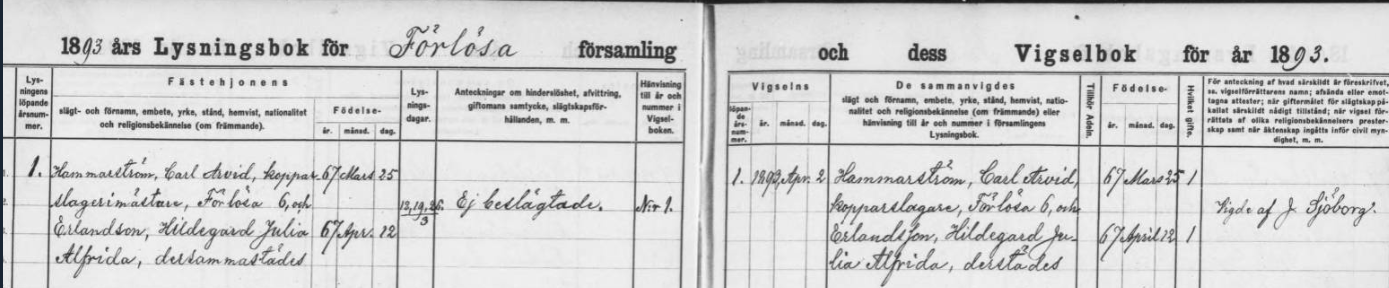 1893 års Lysningsbok för Förlösa församling
och dess Vigselbok för år 1893.
Lysningens löpande årsnummer.
Fästehjonens
slägt- och förnamn, embete, yrke, stånd, hemvist, nationalitet
och religionsbekännelse (om främmande).
Födelse-
år. månad. dag.
Lysningsdagar.
Anteckningar om hinderslöshet, afvittring,
giftomans samtycke, slägtskapsför-
hållanden, m. m.
Hänvisning
till år och
nummer i
Vigsel-
boken.
1. Hammarström, Carl Arvid, koppar- 67 Mars 25
slagerimästare, Förlösa 6, och
12,19,26/3 Ej beslägtade. N:r 1.
Erlandson, Hildegard Julia 67 Apr. 12
Alfrida, dersammastädes
Vigselns
löpande årsnummer. år. månad. dag.
De sammanvigdes
slägt- och förnamn, embete, yrke, stånd, hemvist, natio-
nalitet och religionsbekännelse (om främmande) eller
hänvisning till år och nummer i församlingens
Lysningsbok.
Tillhör Addn.
Födelse-
år. månad. dag.
Hvilket gifte.
För anteckning af hvad särskildt är föreskrifvet,
ss. vigselförrättarens namn; afsända eller emot-
tagna attester; när giftermålet för slägtskap på-
kallat särskildt nådigt tillstånd; när vigsel för-
rättats af olika religionsbekännelsers prester-
skap samt när äktenskap ingåtts inför civil myn-
dighet, m. m.
1. 1893 Apr. 2 Hammarström, Carl Arvid, 67 Mars 25 1
kopparslagare, Förlösa 6, och
Vigde af J. Sjöborg.
Erlandsson, Hildegard Ju- 67 April 12 1
lia Alfrida, derstädes